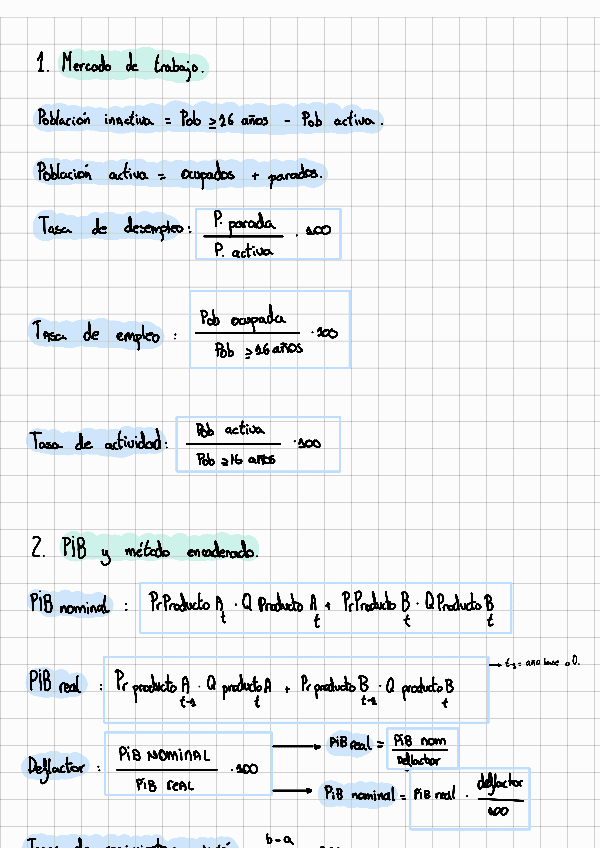 1. Mercado de trabajo.
Población inactiva = Pob ≥16 años - Pob activa.
Población activa = ocupados + parados.
Tasa de desempleo: P. parada / P. activa · 100
Tasa de empleo : Pob ocupada / Pob ≥16 años · 100
Tasa de actividad: Pob activa / Pob ≥16 años · 100
2. PiB y método encadenado.
PiB nominal : Pr Producto A t · Q Producto A t + Pr Producto B t · Q Producto B t
PiB real : Pr producto A t-1 · Q producto A t + Pr producto B t-1 · Q producto B t
→ t-1 = año base o 0.
Deflactor : PiB NOMINAL / PiB REAL · 100
→ PiB real = PiB nom / Deflactor
→ PiB nominal = PiB real · deflactor / 100
b-a